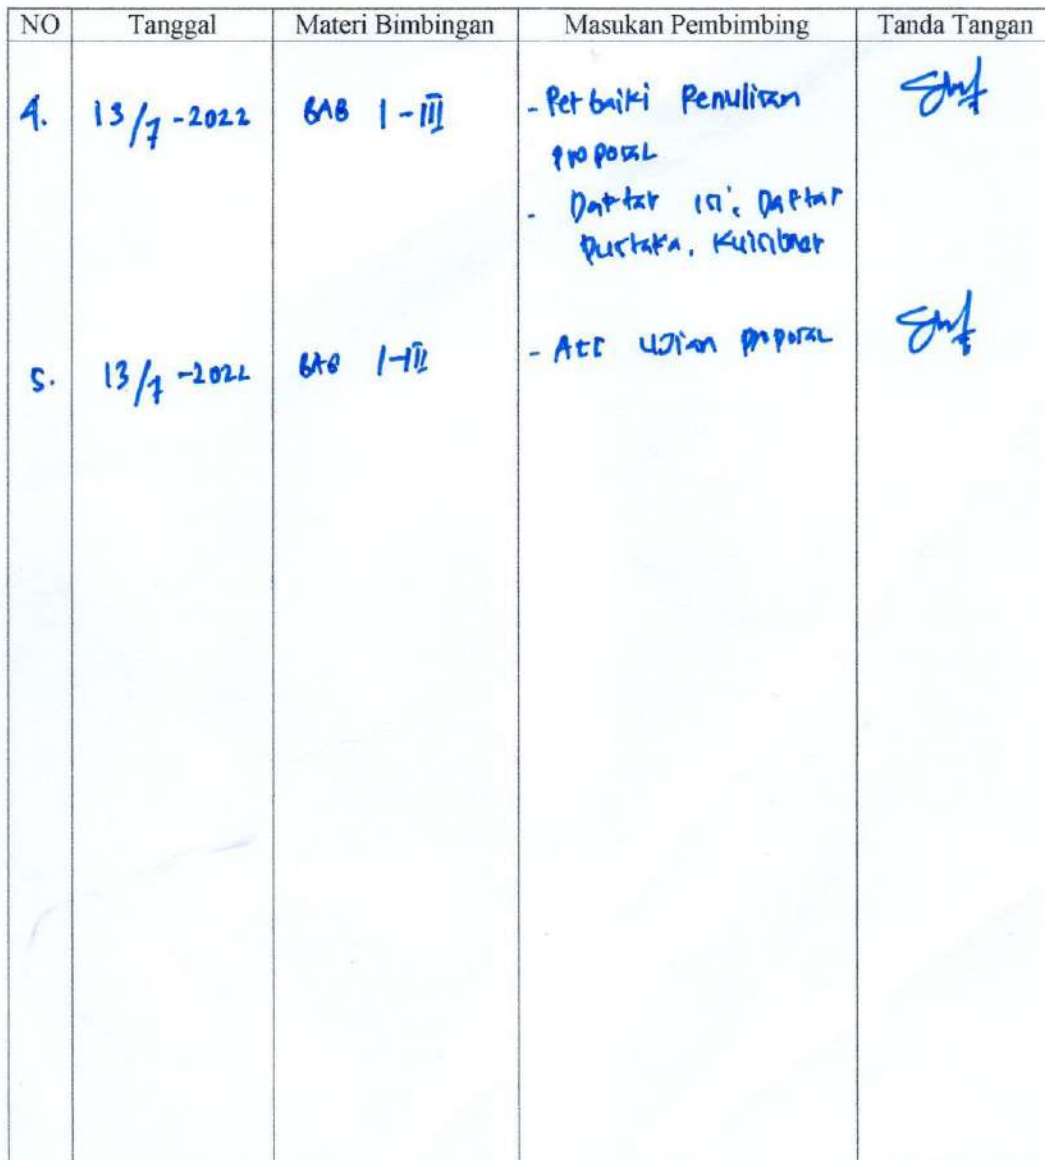 NO Tanggal Materi Bimbingan Masukan Pembimbing Tanda Tangan
4. 13/7-2022 BAB I-III - Perbaiki Penulisan
proposal
- Daftar isi, Daftar
Pustaka, Kuisioner
5. 13/7-2022 BAB I-III - Acc Ujian proposal